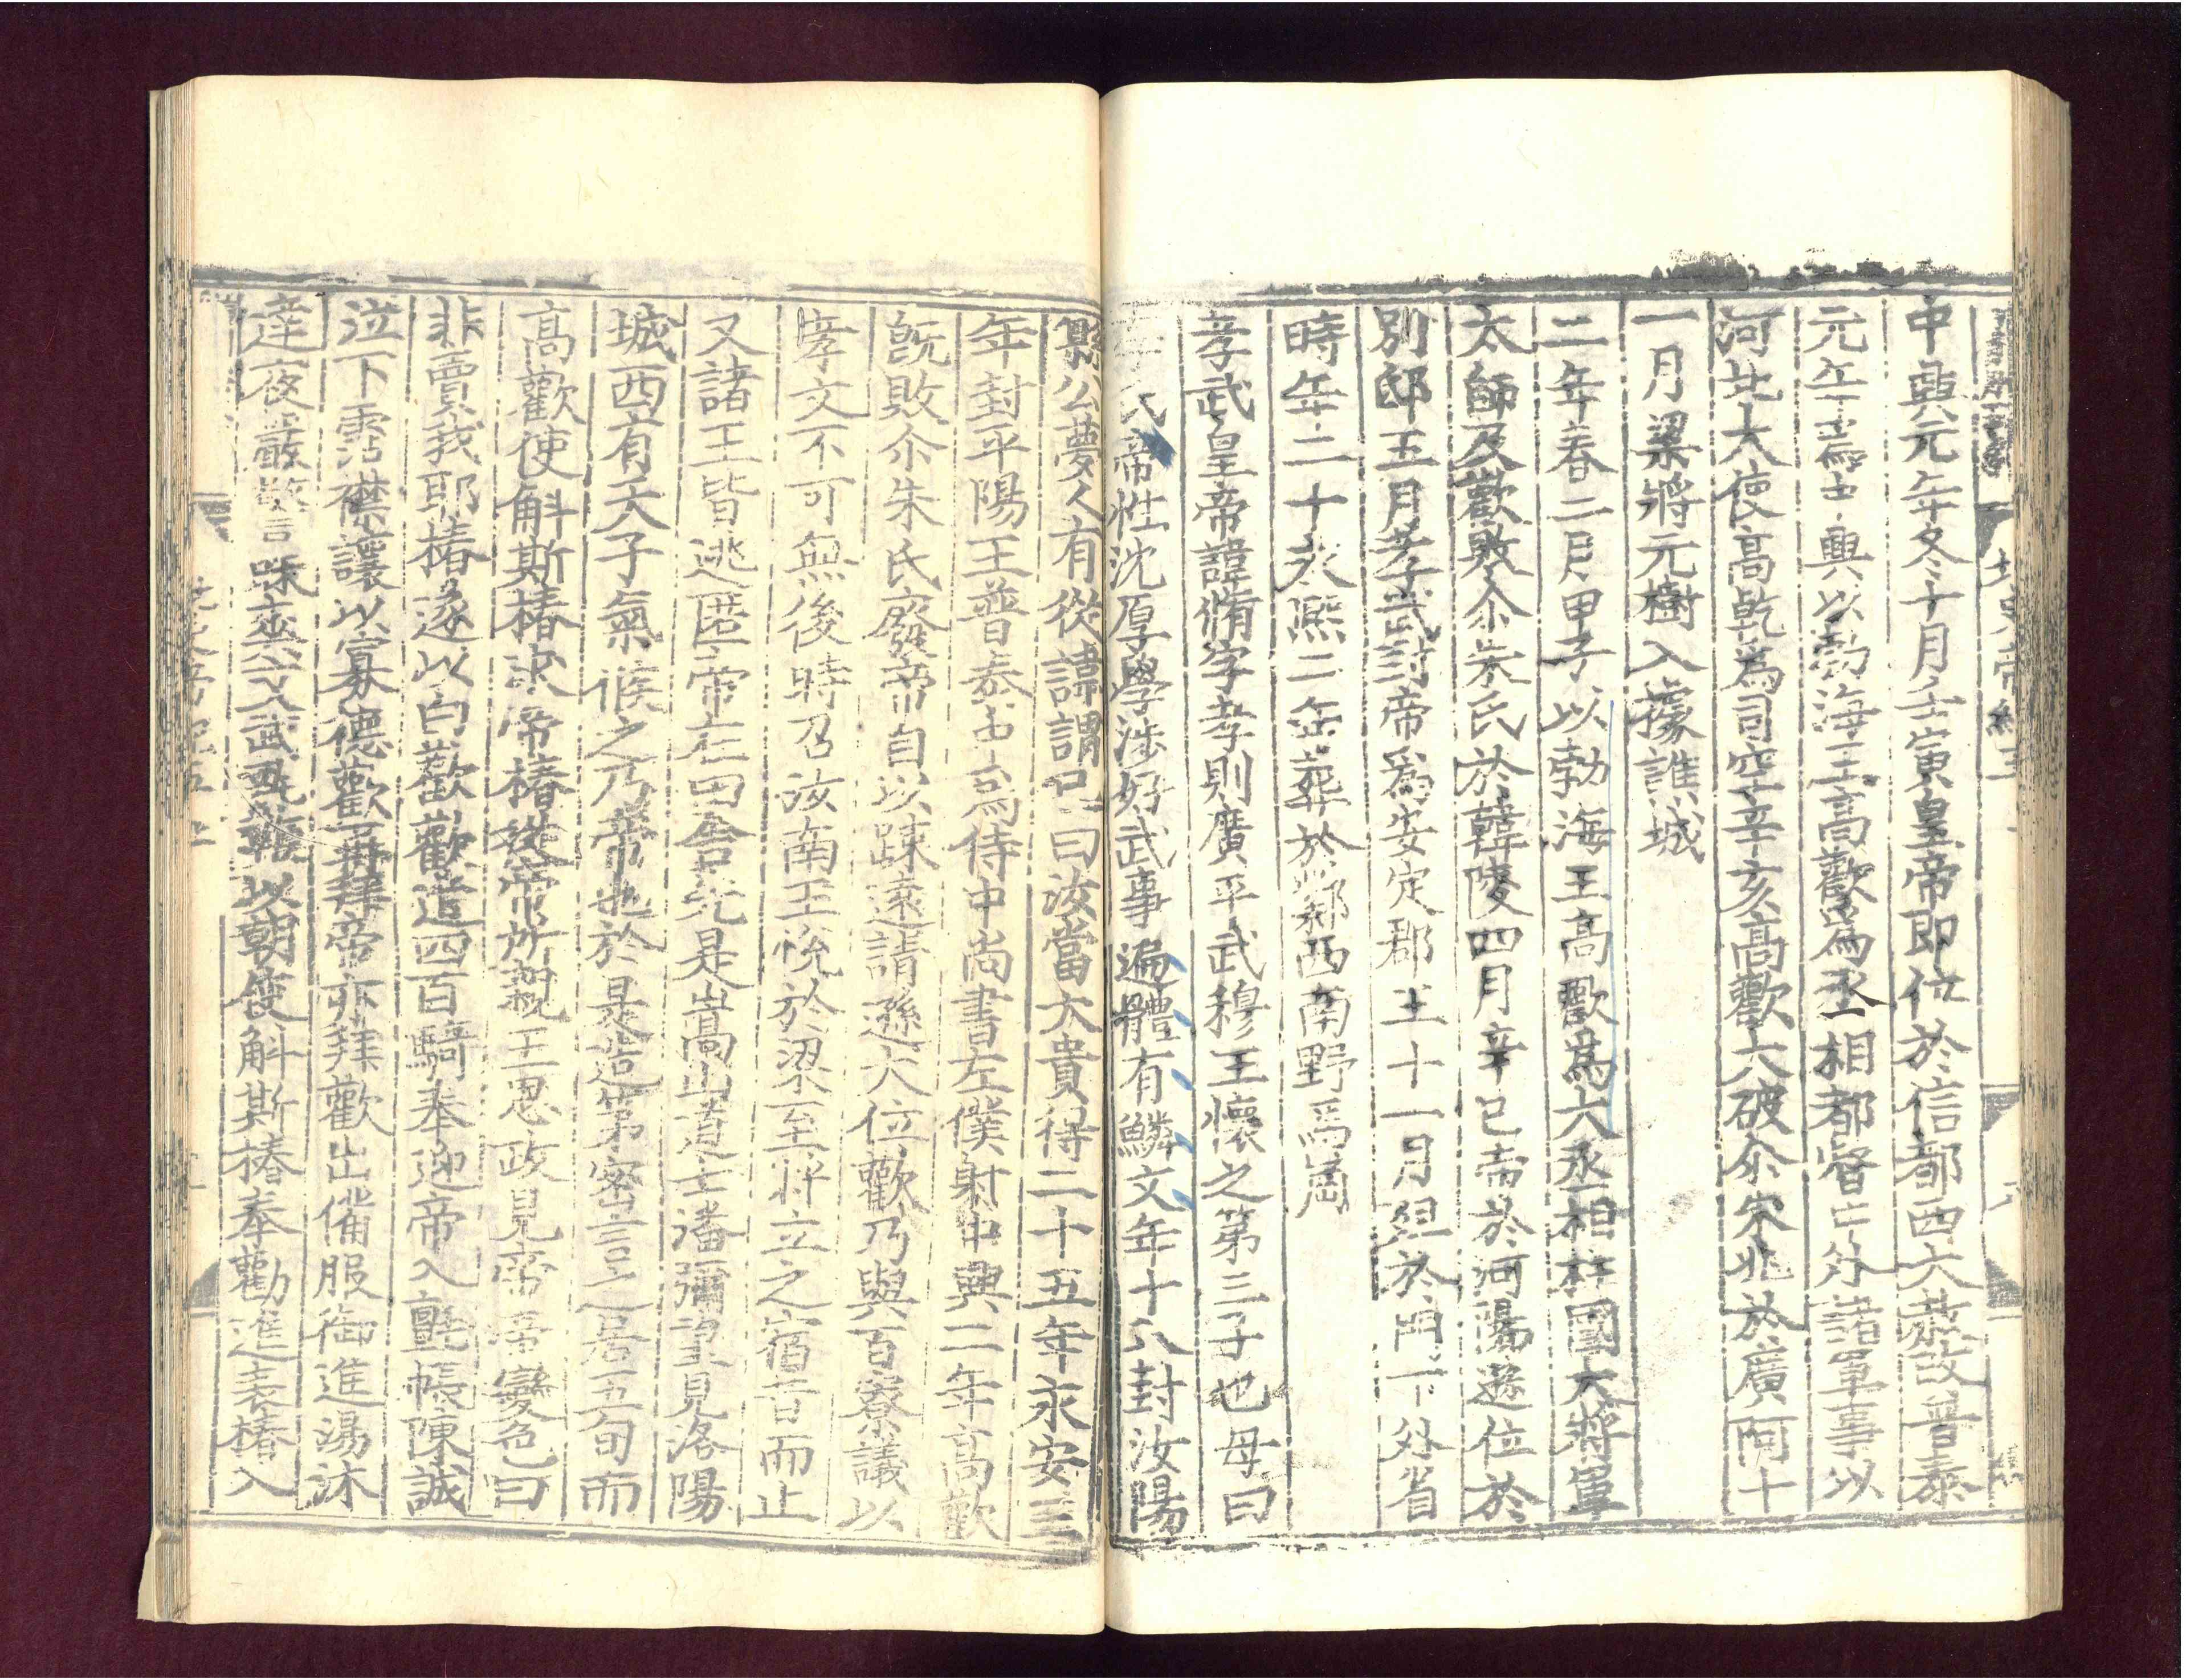 中興元年冬十月壬寅皇帝即位於信都西大赦改普泰
元年爲中興以勃海王高歡爲丞相都督中外諸軍事以
河北大使高乾爲司空辛亥高歡大破尒朱兆於廣阿十
一月梁將元樹入據譙城
二年春二月甲子以勃海王高歡爲大丞相柱國大將軍
太師及歡敗尒朱氏於韓陵四月辛巳帝於河陽遜位於
別邸五月孝武封帝爲安定郡王十一月殂於門下外省
時年二十永熈二年葬於鄴西南野馬崗
孝武皇帝諱脩字孝則廣平武穆王懷之第三子也母曰
李氏帝性沈厚學涉好武事遍體有鱗文年十八封汝陽
縣公夢人有從諱謂口曰汝當大貴得二十五年永安三
年封平陽王普泰中爲侍中尚書左僕射中興二年高歡
旣敗尒朱氏廢帝自以踈遠請遜大位歡乃與百寮議以
孝文不可無後時召汝南王悅於梁至將立之宿昔而止
又諸王皆逃匿帝在田舍先是嵩山道士潘彌望見洛陽
城西有天子氣候之乃帝也於是造第密言之居五旬而
高歡使斛斯椿求帝椿從帝所親王思政見帝帝變色曰
非賣我耶椿遂以白歡歡遣四百騎奉迎帝入氈帳陳誠
泣下霑襟讓以寡德歡再拜帝亦拜歡出備服御進湯沐
達夜嚴警昧爽文武執鞭以朝使斛斯椿奉勸進表椿入